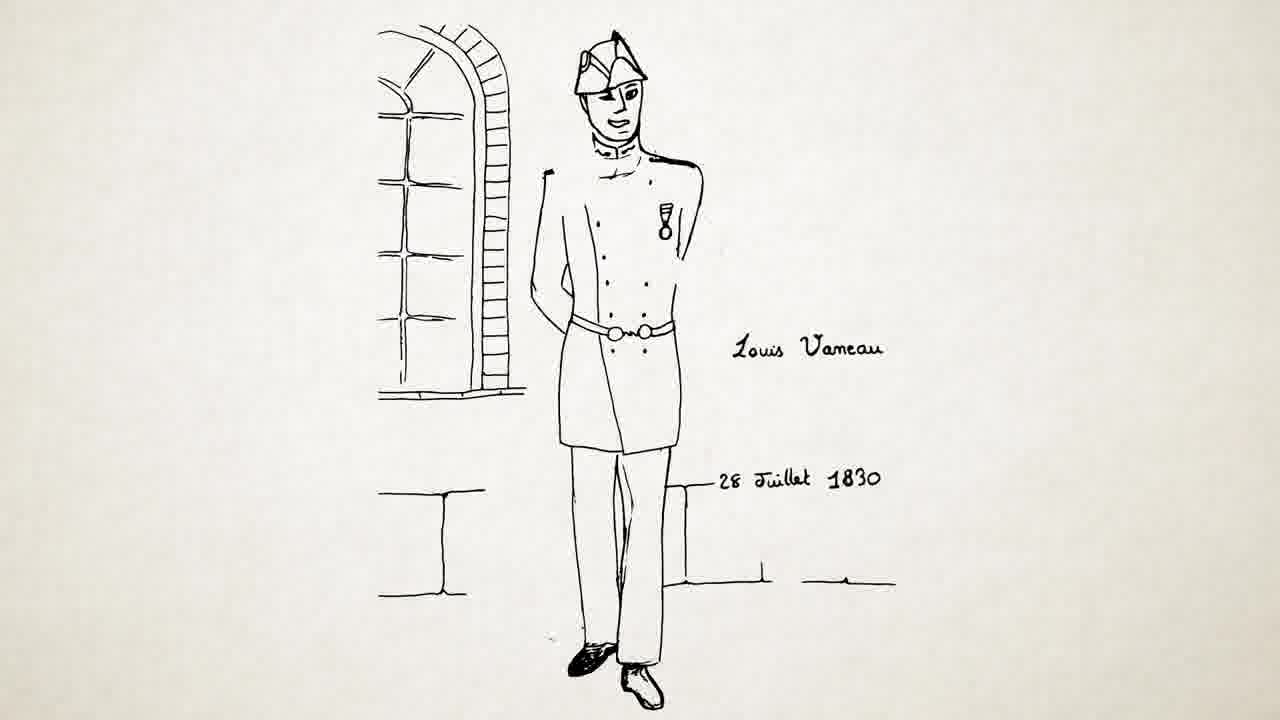 Louis Vaneau
28 Juillet 1830